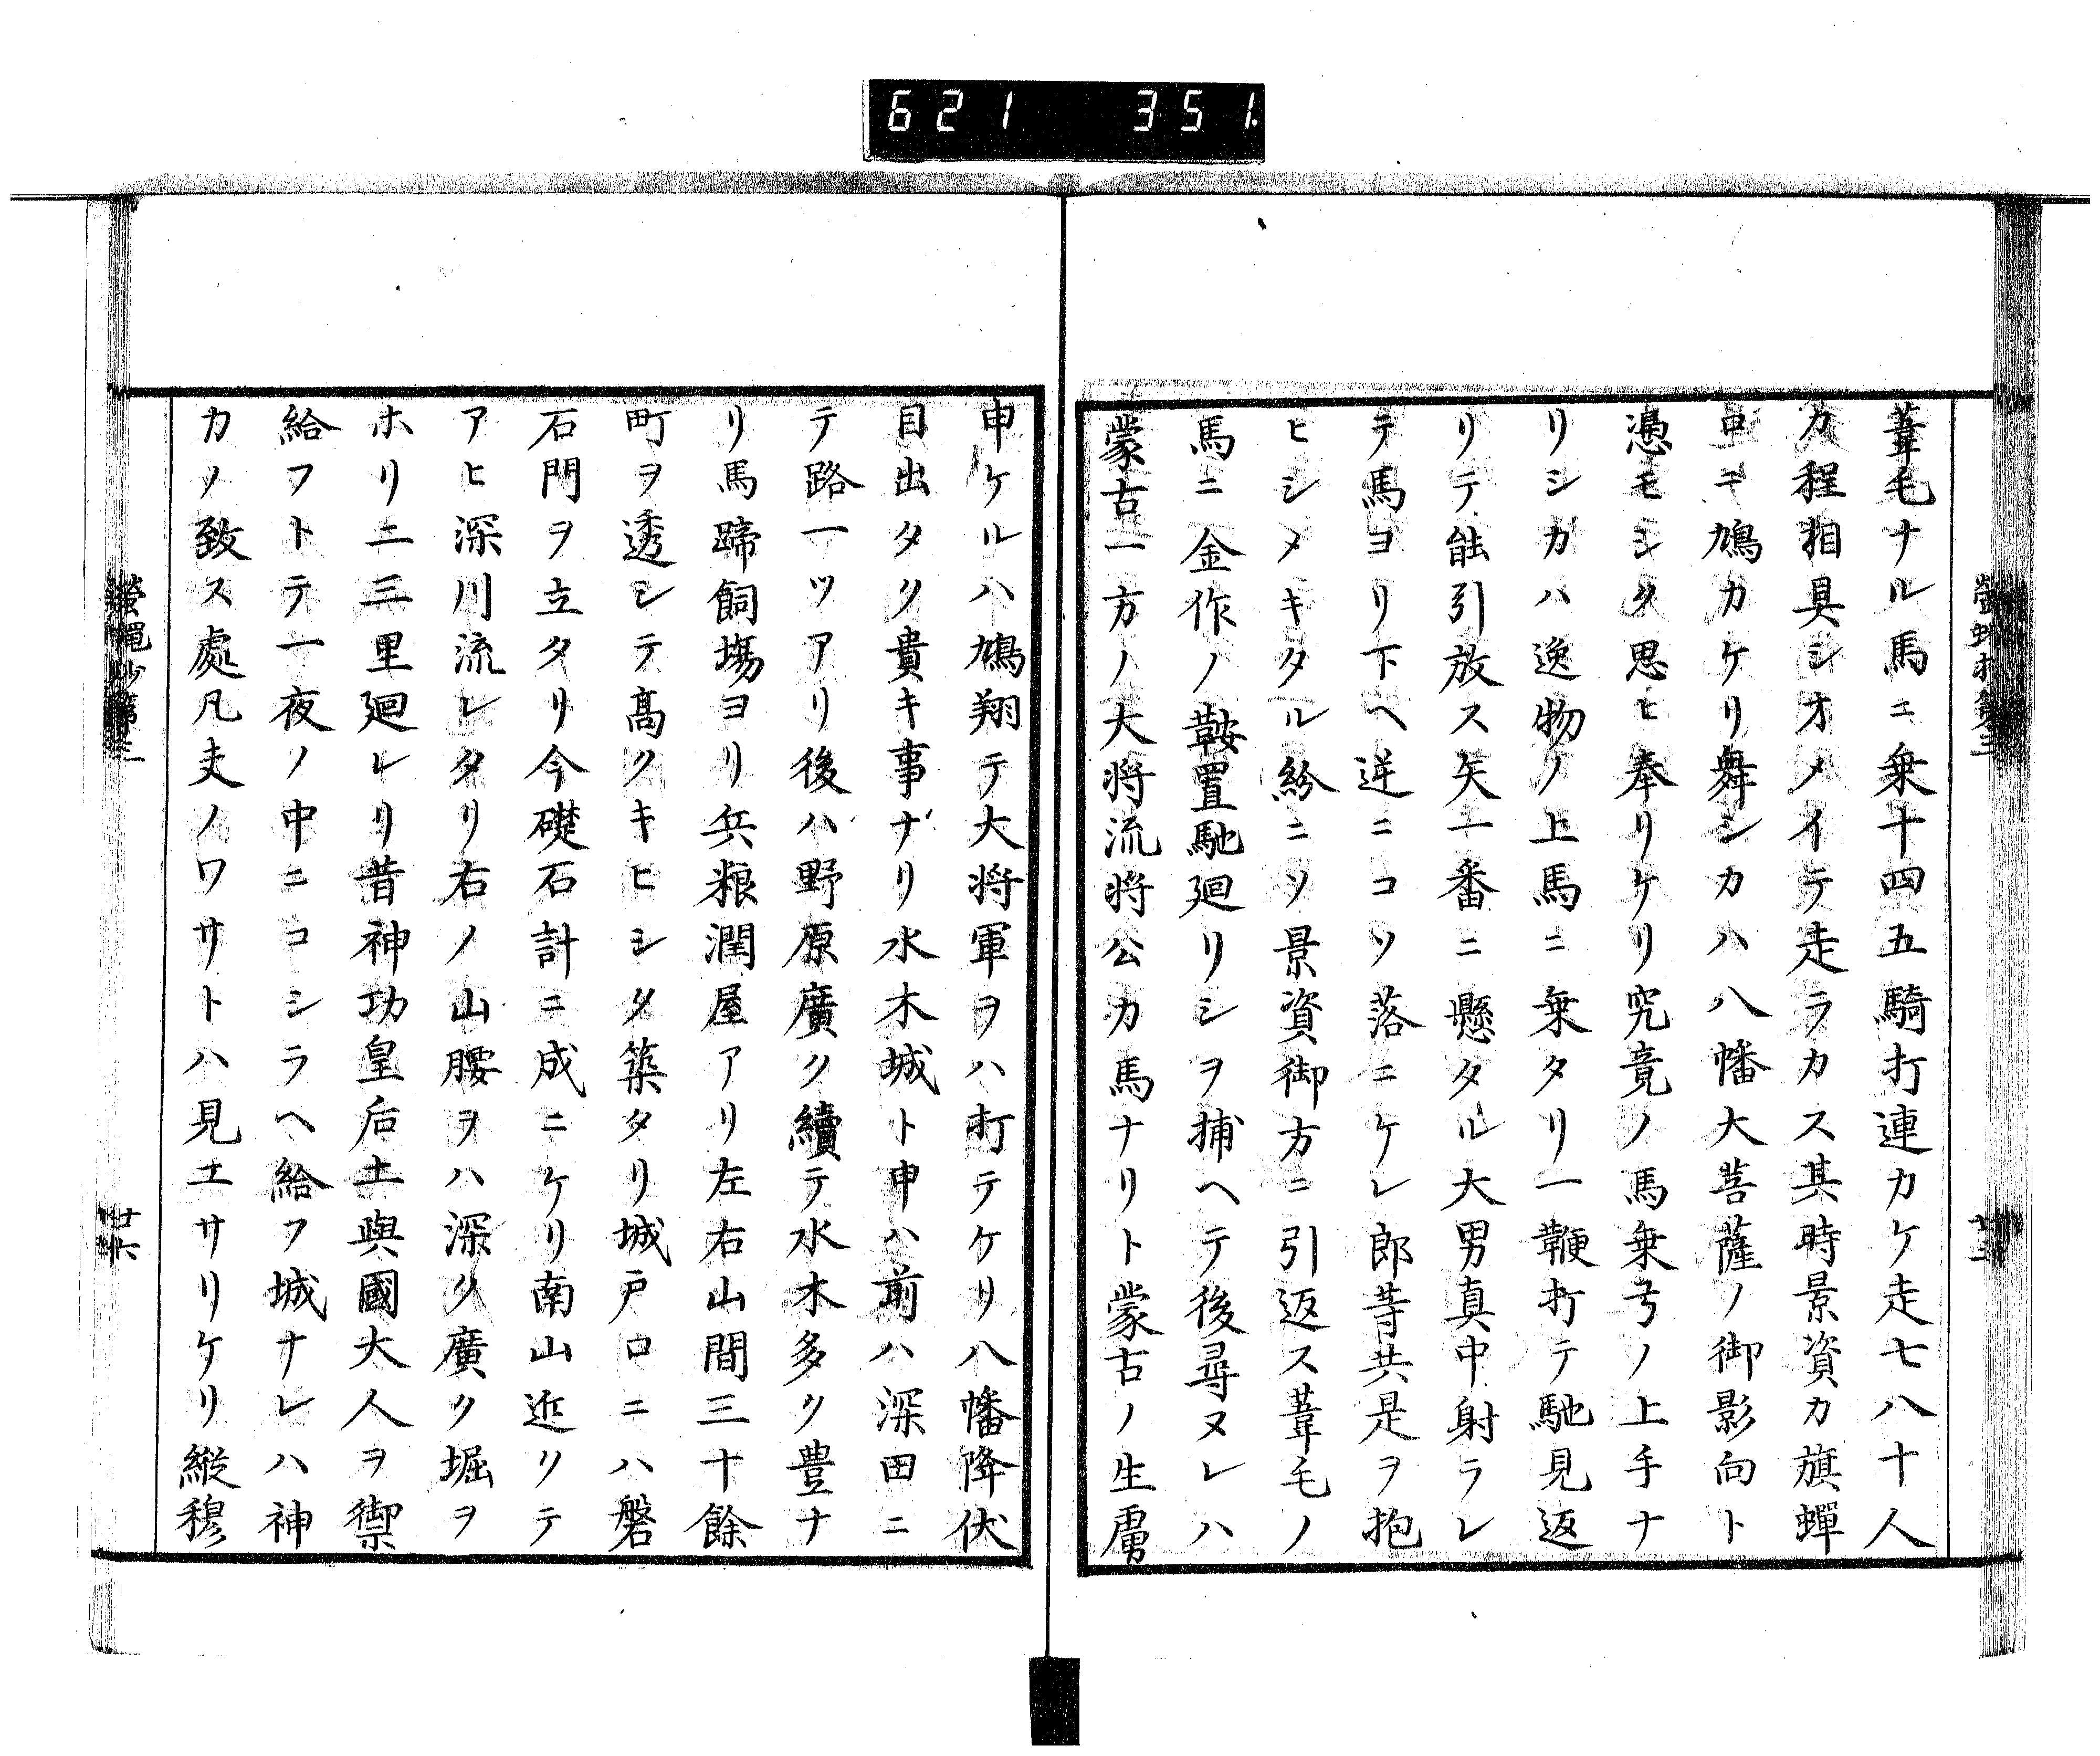 621 351
葦毛ナル馬ニ乗十四五騎打連カケ走七八十人
カ程相具シオメイテ走ラカス其時景資カ旗蟬
口ニ鳩カケリ舞シカハ八幡大菩薩ノ御影向ト
憑モシク思ヒ奉リケリ究竟ノ馬乗弓ノ上手ナ
リシカハ逸物ノ上馬ニ乗タリ一鞭打テ馳見返
リテ能引放ス矢一番ニ懸タル大男真中射ラレ
テ馬ヨリ下ヘ逆ニコソ落ニケレ郎等共是ヲ抱
ヒシメキタル紛ニソ景資御方ニ引返ス葦毛ノ
馬ニ金作ノ鞍置馳廻リシヲ捕ヘテ後尋ヌレハ
蒙古一方ノ大将流将公カ馬ナリト蒙古ノ生虜
申ケルハ鳩翔テ大将軍ヲハ打テケリ八幡降伏
目出タク貴キ事ナリ水木城ト申ハ前ハ深田ニ
テ路一ツアリ後ハ野原廣ク續テ水木多ク豊ナ
リ馬蹄飼場ヨリ兵粮潤屋アリ左右山間三十餘
町ヲ透シテ髙クキヒシク築タリ城戸口ニハ磐
石門ヲ立タリ今礎石計ニ成ニケリ南山近クテ
アヒ深川流レタリ右ノ山腰ヲハ深ク廣ク堀ヲ
ホリニ三里廻レリ昔神功皇后土與國大人ヲ禦
給フトテ一夜ノ中ニコシラヘ給フ城ナレハ神
カノ致ス處凡夫ノワサトハ見エサリケリ縱穆
螢蠅抄第三
廿六